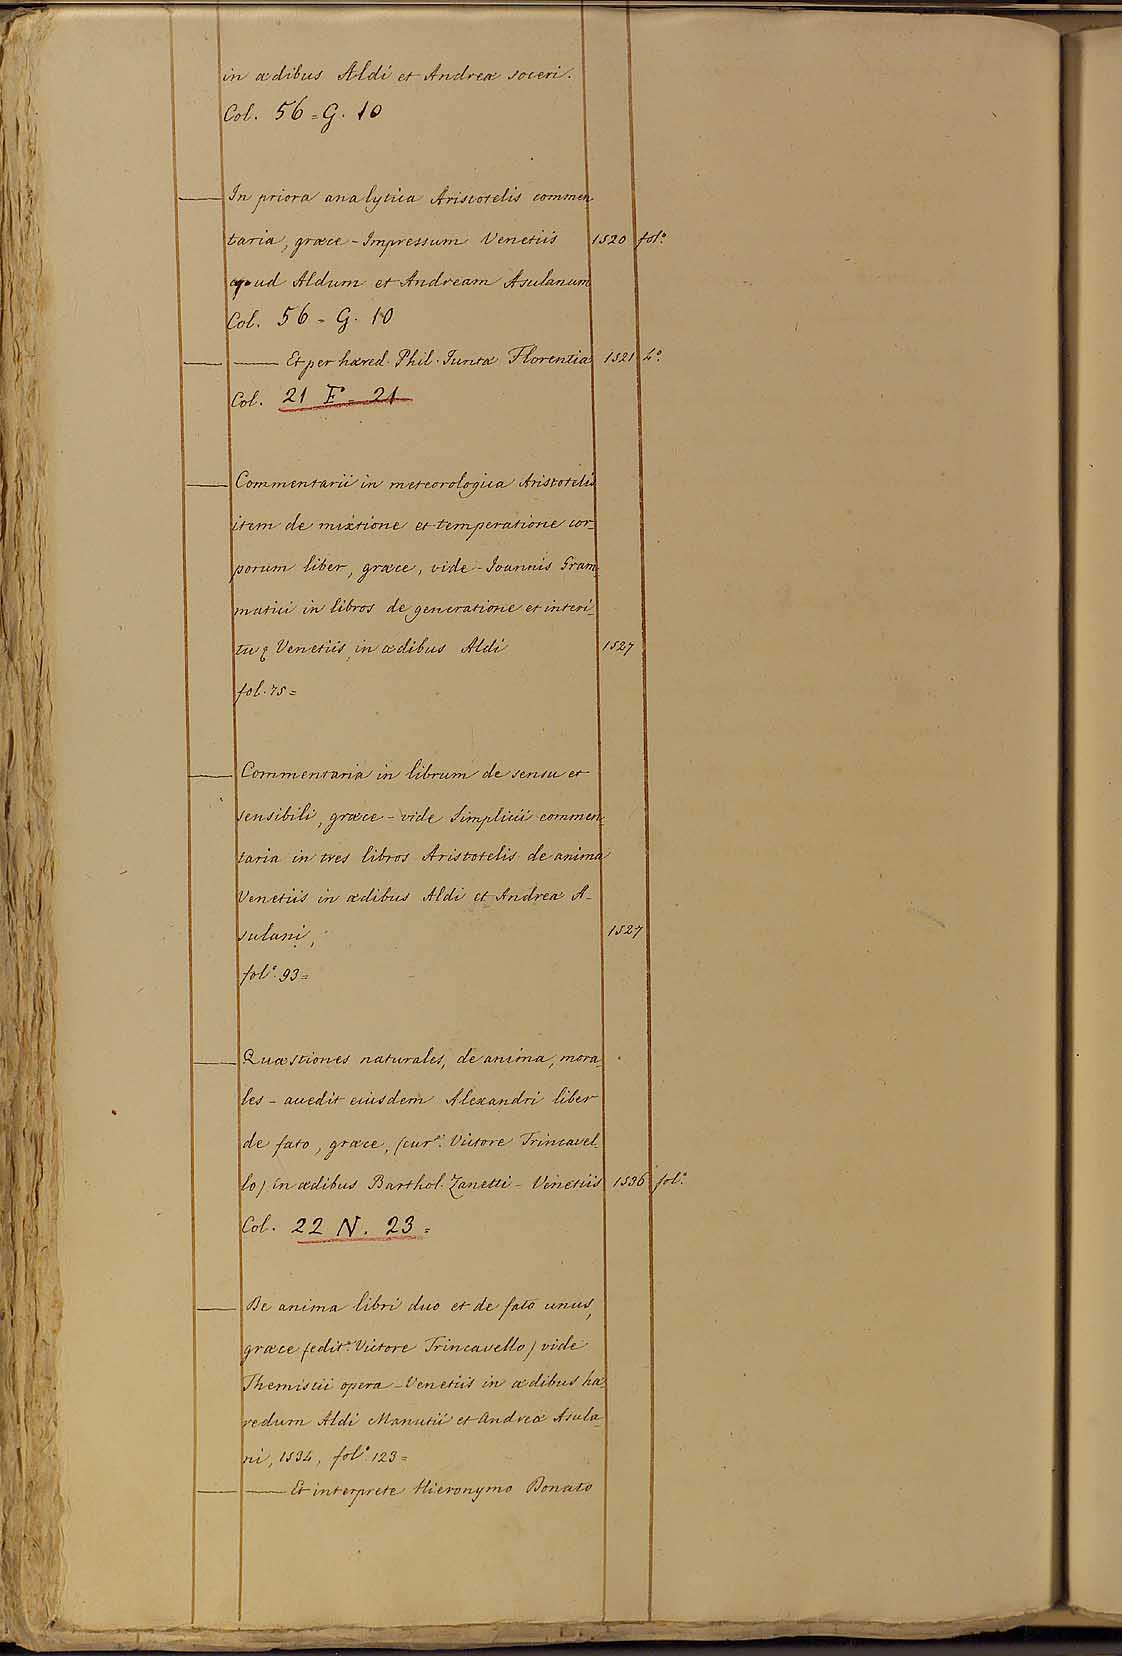 in ædibus Aldi et Andreæ soceri.
Col. 56 = G. 10
— In priora analytica Aristotelis commen
taria, græce - Impressum Venetiis 1520 fol.º
apud Aldum et Andream Asulanum
Col. 56 - G. 10
— — Et per hæred. Phil. Juntæ Florentiæ 1521 4º.
Col. 21 F = 21
— Commentarii in meteorologica Aristotelis
item de mixtione et temperatione cor-
porum liber, græce, vide - Ioannis Gram-
matici in libros de generatione et interi-
tu Venetiis, in ædibus Aldi 1527
fol. 75 =
— Commentaria in librum de sensu et
sensibili, græce - vide Simplicii commen-
taria in tres libros Aristotelis de anima
Venetiis in ædibus Aldi et Andreæ A-
sulani, 1527
fol.º 93 =
— Quæstiones naturales, de anima, mora-
les - accedit eiusdem Alexandri liber
de fato, græce, (cur.ᵉ Victore Trincavel-
lo) in ædibus Barthol. Zanetti - Venetiis 1536 fol.º
Col. 22 N. 23 =
— De anima libri duo et de fato unus,
græce (edit.ᵉ Victore Trincavello) vide
Themistii opera - Venetiis in ædibus hæ-
redum Aldi Manutii et Andreæ Asula-
ni, 1534, fol.º 123 =
— — Et interprete Hieronymo Donato